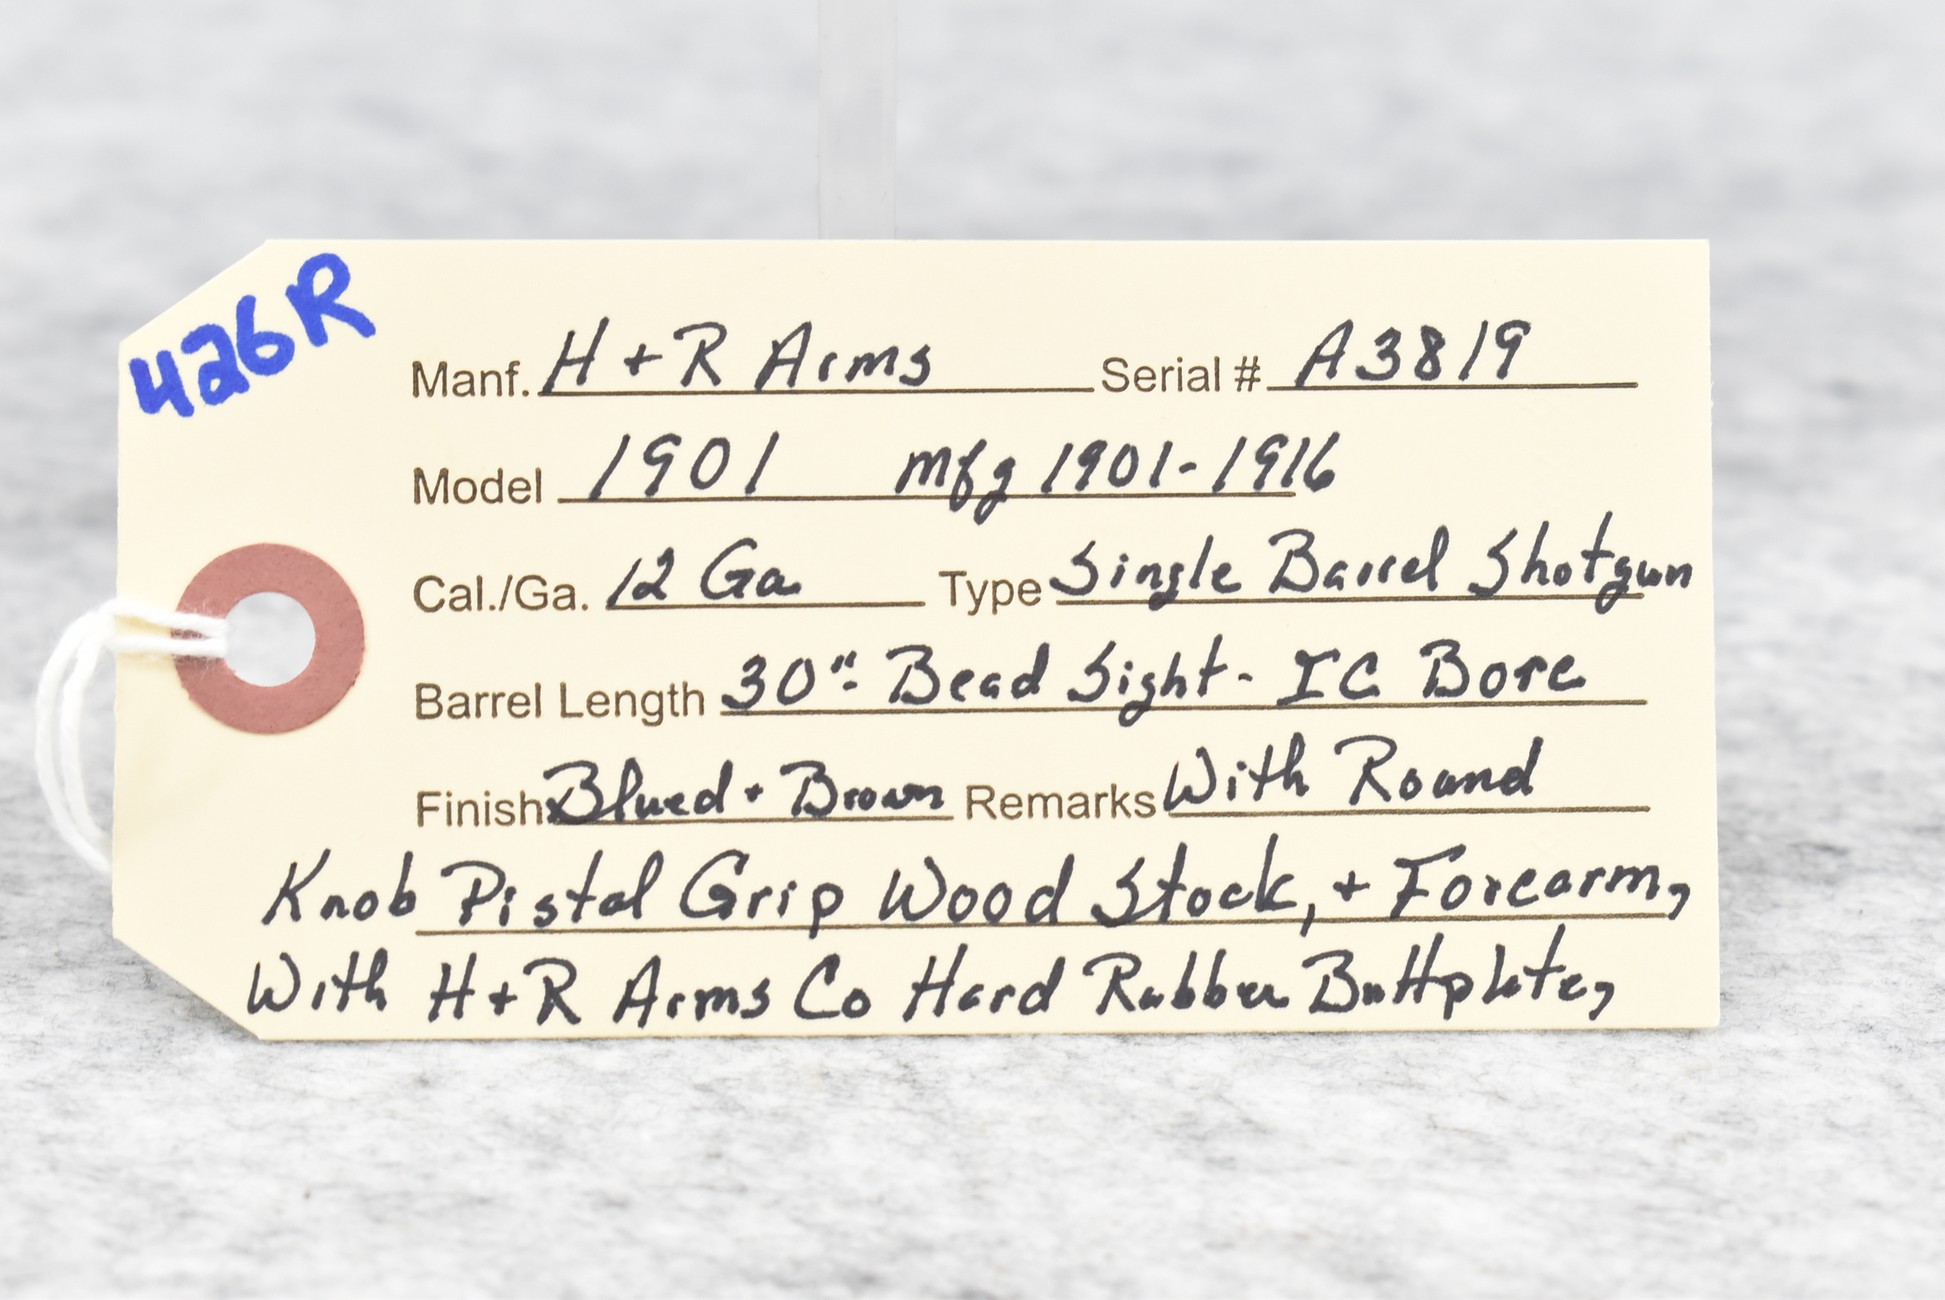 426R
Manf. H + R Arms Serial # A3819
Model 1901 mfg 1901-1916
Cal./Ga. 12 Ga Type Single Barrel Shotgun
Barrel Length 30" - Bead Sight - IC Bore
Finish Blued + Brown Remarks With Round
Knob Pistol Grip Wood Stock, + Forearm,
With H+R Arms Co Hard Rubber Buttplate,